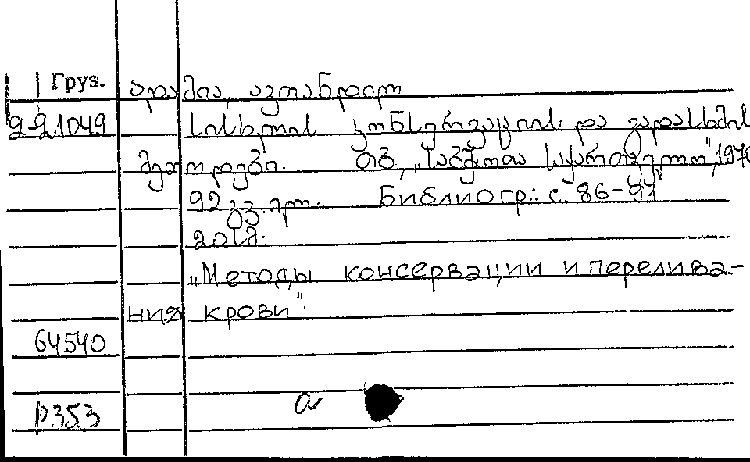 Груз. ადამია, ავთანდილ
2-21049 სისხლის კონსერვაციის და გადასხმის
მეთოდები. თბ., „საბჭოთა საქართველო", 1970
92 გვ. Библиогр.: с. 86-91
„Методы консервации и перелива-
ния крови"
64540
P353